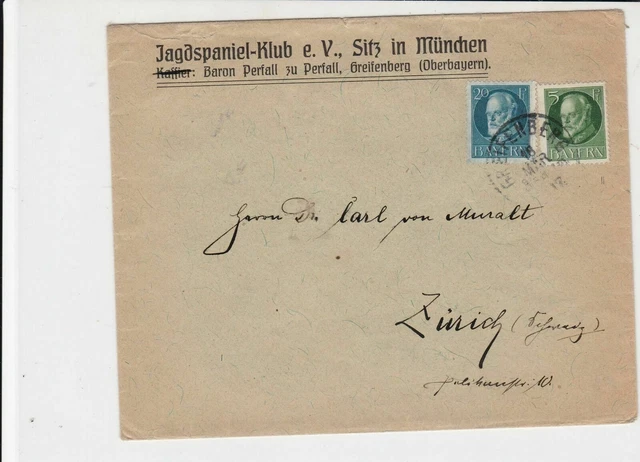 Jagdspaniel-Klub e. V., Sitz in München
Kassier: Baron Perfall zu Perfall, Greifenberg (Oberbayern).
20 Pf
BAYERN
5 Pf
BAYERN
GREIFENBERG
MAR
Herrn Dr. Carl von Muralt
Zürich (Schweiz)